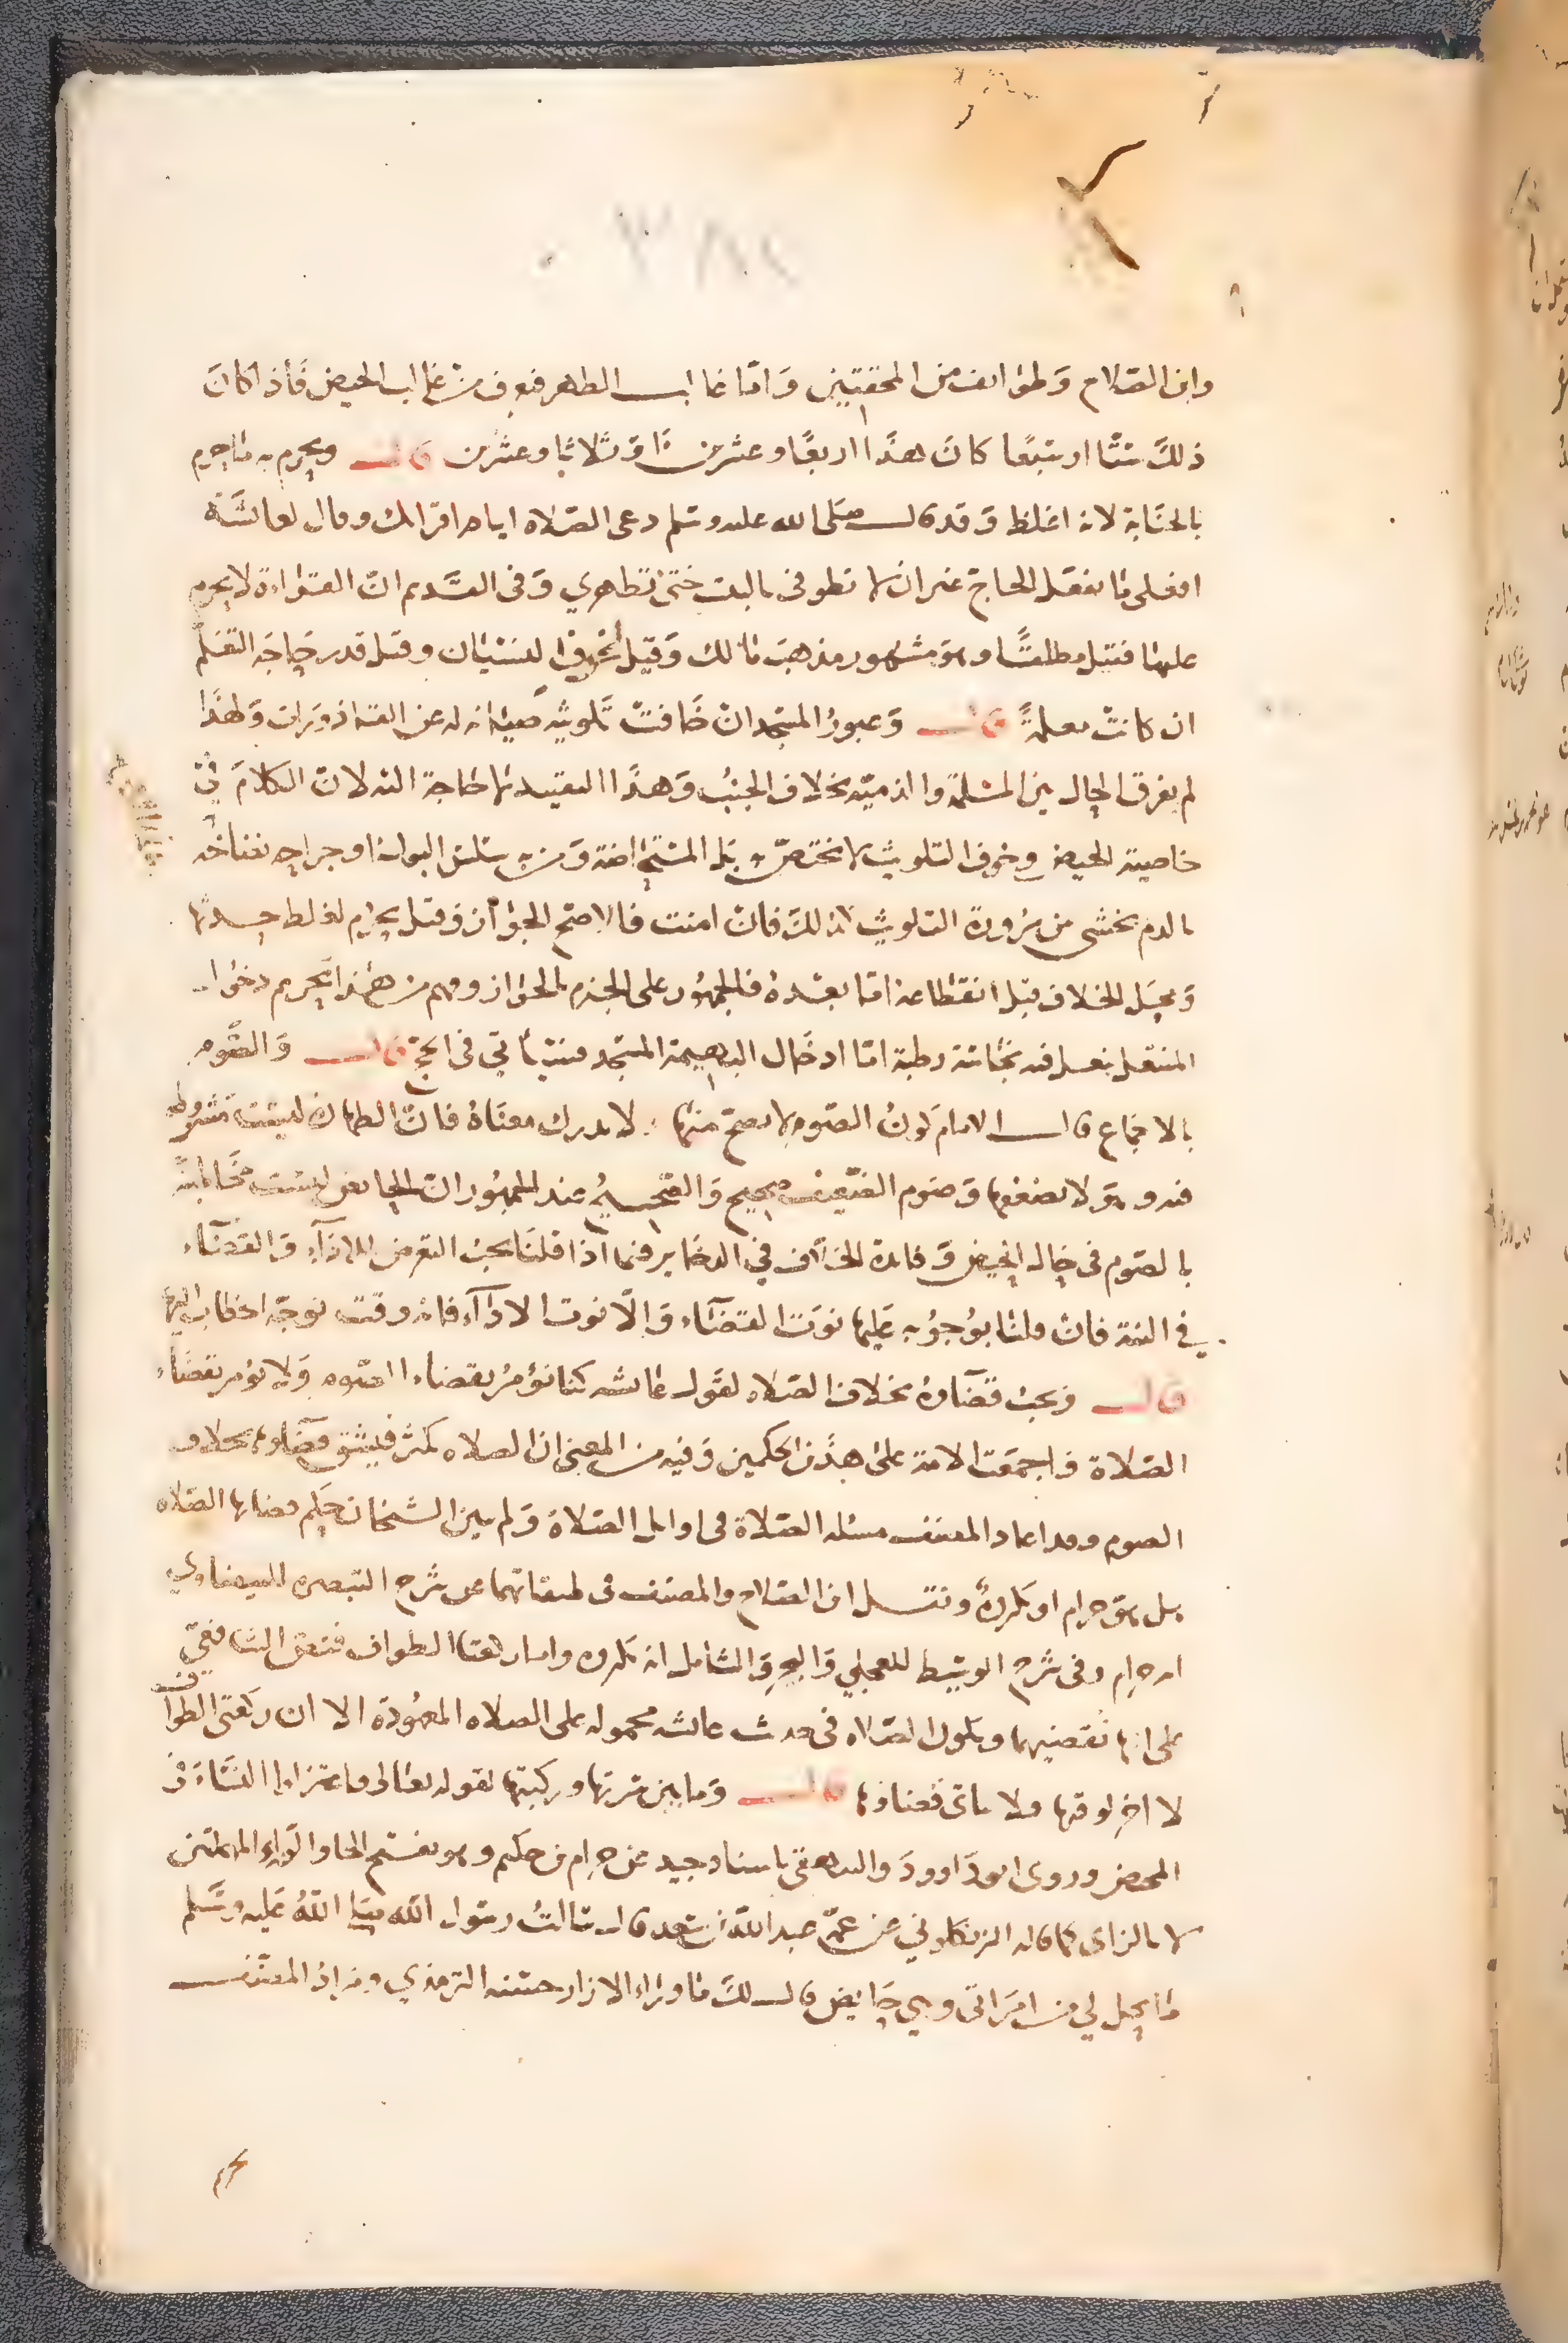 وابن الصلاح وطوائف من المحققين واما غالب الطهر فيعرف من غالب الحيض فاذا كان
ذلك ستا او سبعا كان هذا اربعا وعشرين او ثلاثا وعشرين قال ويحرم به ما حرم
بالجنابة لانه اغلظ وقد قال صلى الله عليه وسلم دعى الصلاة ايام اقرائك وقال لعائشة
افعلى ما يفعل الحاج غير ان لا تطوفى بالبيت حتى تطهري وفى القديم ان القراءة لا يحرم
عليها فقيل مطلقا وهو مشهور مذهب مالك وقيل لخوف النسيان وقيل قدر حاجة التعلم
ان كانت معلمة قال وعبور المسجد ان خافت تلويثه صيانه له عن القاذورات ولهذا
لم يفرق الحال بين المسلمة والذمية بخلاف الجنب وهذا التقييد لا حاجة اليه لان الكلام في
خاصية الحيض وخوف التلويث لا يختص به بل المستحاضة ومن به سلس البول او جراحه نضاخه
بالدم يخشى من مروره التلويث كذلك فان امنت فالاصح الجواز وقيل يحرم لغلظ حدثها
ومحل الخلاف قبل انقطاعه اما بعده فالجمهور على الجزم بالجواز وفهم من هذا تحريم دخول
المتنعل بنعل فيه نجاسة رطبة اما ادخال البهيمة المسجد فسيأتي فى الحج قال والصوم
بالاجماع قال الامام كون الصوم لا يصح منها لا يدرك معناه فان الطهارة ليست مشروطه
فيه وهو لا يضعفها وصوم الضعيف صحيح والصحيح عند الجمهور ان الحائض ليست مخاطبة
بالصوم فى حال الحيض وفائدة الخلاف في الذخاير فيما اذا قلنا يجب التعرض للاداء والقضاء
في النية فان قلنا بوجوبه عليها نوت القضاء والا نوت الاداء فانه وقت توجه الخطاب اليها
قال ويجب قضاؤه بخلاف الصلاه لقول عائشه كنا نؤمر بقضاء الصوم ولا نؤمر بقضاء
الصلاة واجمعت الامة على هذين الحكمين وفيه من المعنى ان الصلاه تكثر فيشق قضاؤها بخلاف
الصوم وقد اعاد المصنف مسئله الصلاة فى اوائل الصلاة ولم يبين الشيخان حكم قضائها الصلاه
بل هو حرام او مكروه ونقل ابن الصلاح والمصنف فى طبقاتهما عن شرح التبصره للبيضاوي
انه حرام وفى شرح الوسيط للعجلي والبحر والشامل انه مكروه واما ركعتا الطواف فنص الشافعي
على انها تقضيهما ويكون الصلاه فى حديث عائشه محموله على الصلاه المعهودة الا ان ركعتى الطواف
لا اخر لوقتها ولا ياتى قضاؤها قال وما بين سرتها وركبتها لقوله تعالى فاعتزلوا النساء في
المحيض وروى ابو داوود والبيهقى باسناد جيد عن حرام بن حكيم وهو بفتح الحا والراء المهملتين
لا بالزاى كما قاله الزنكلوني عن عمه عبد الله بن سعد قال سالت رسول الله صلى الله عليه وسلم
ما يحل لي من امراتى وهي حايض قال لك ما وراء الازار حسنه الترمذي ومراد المصنف